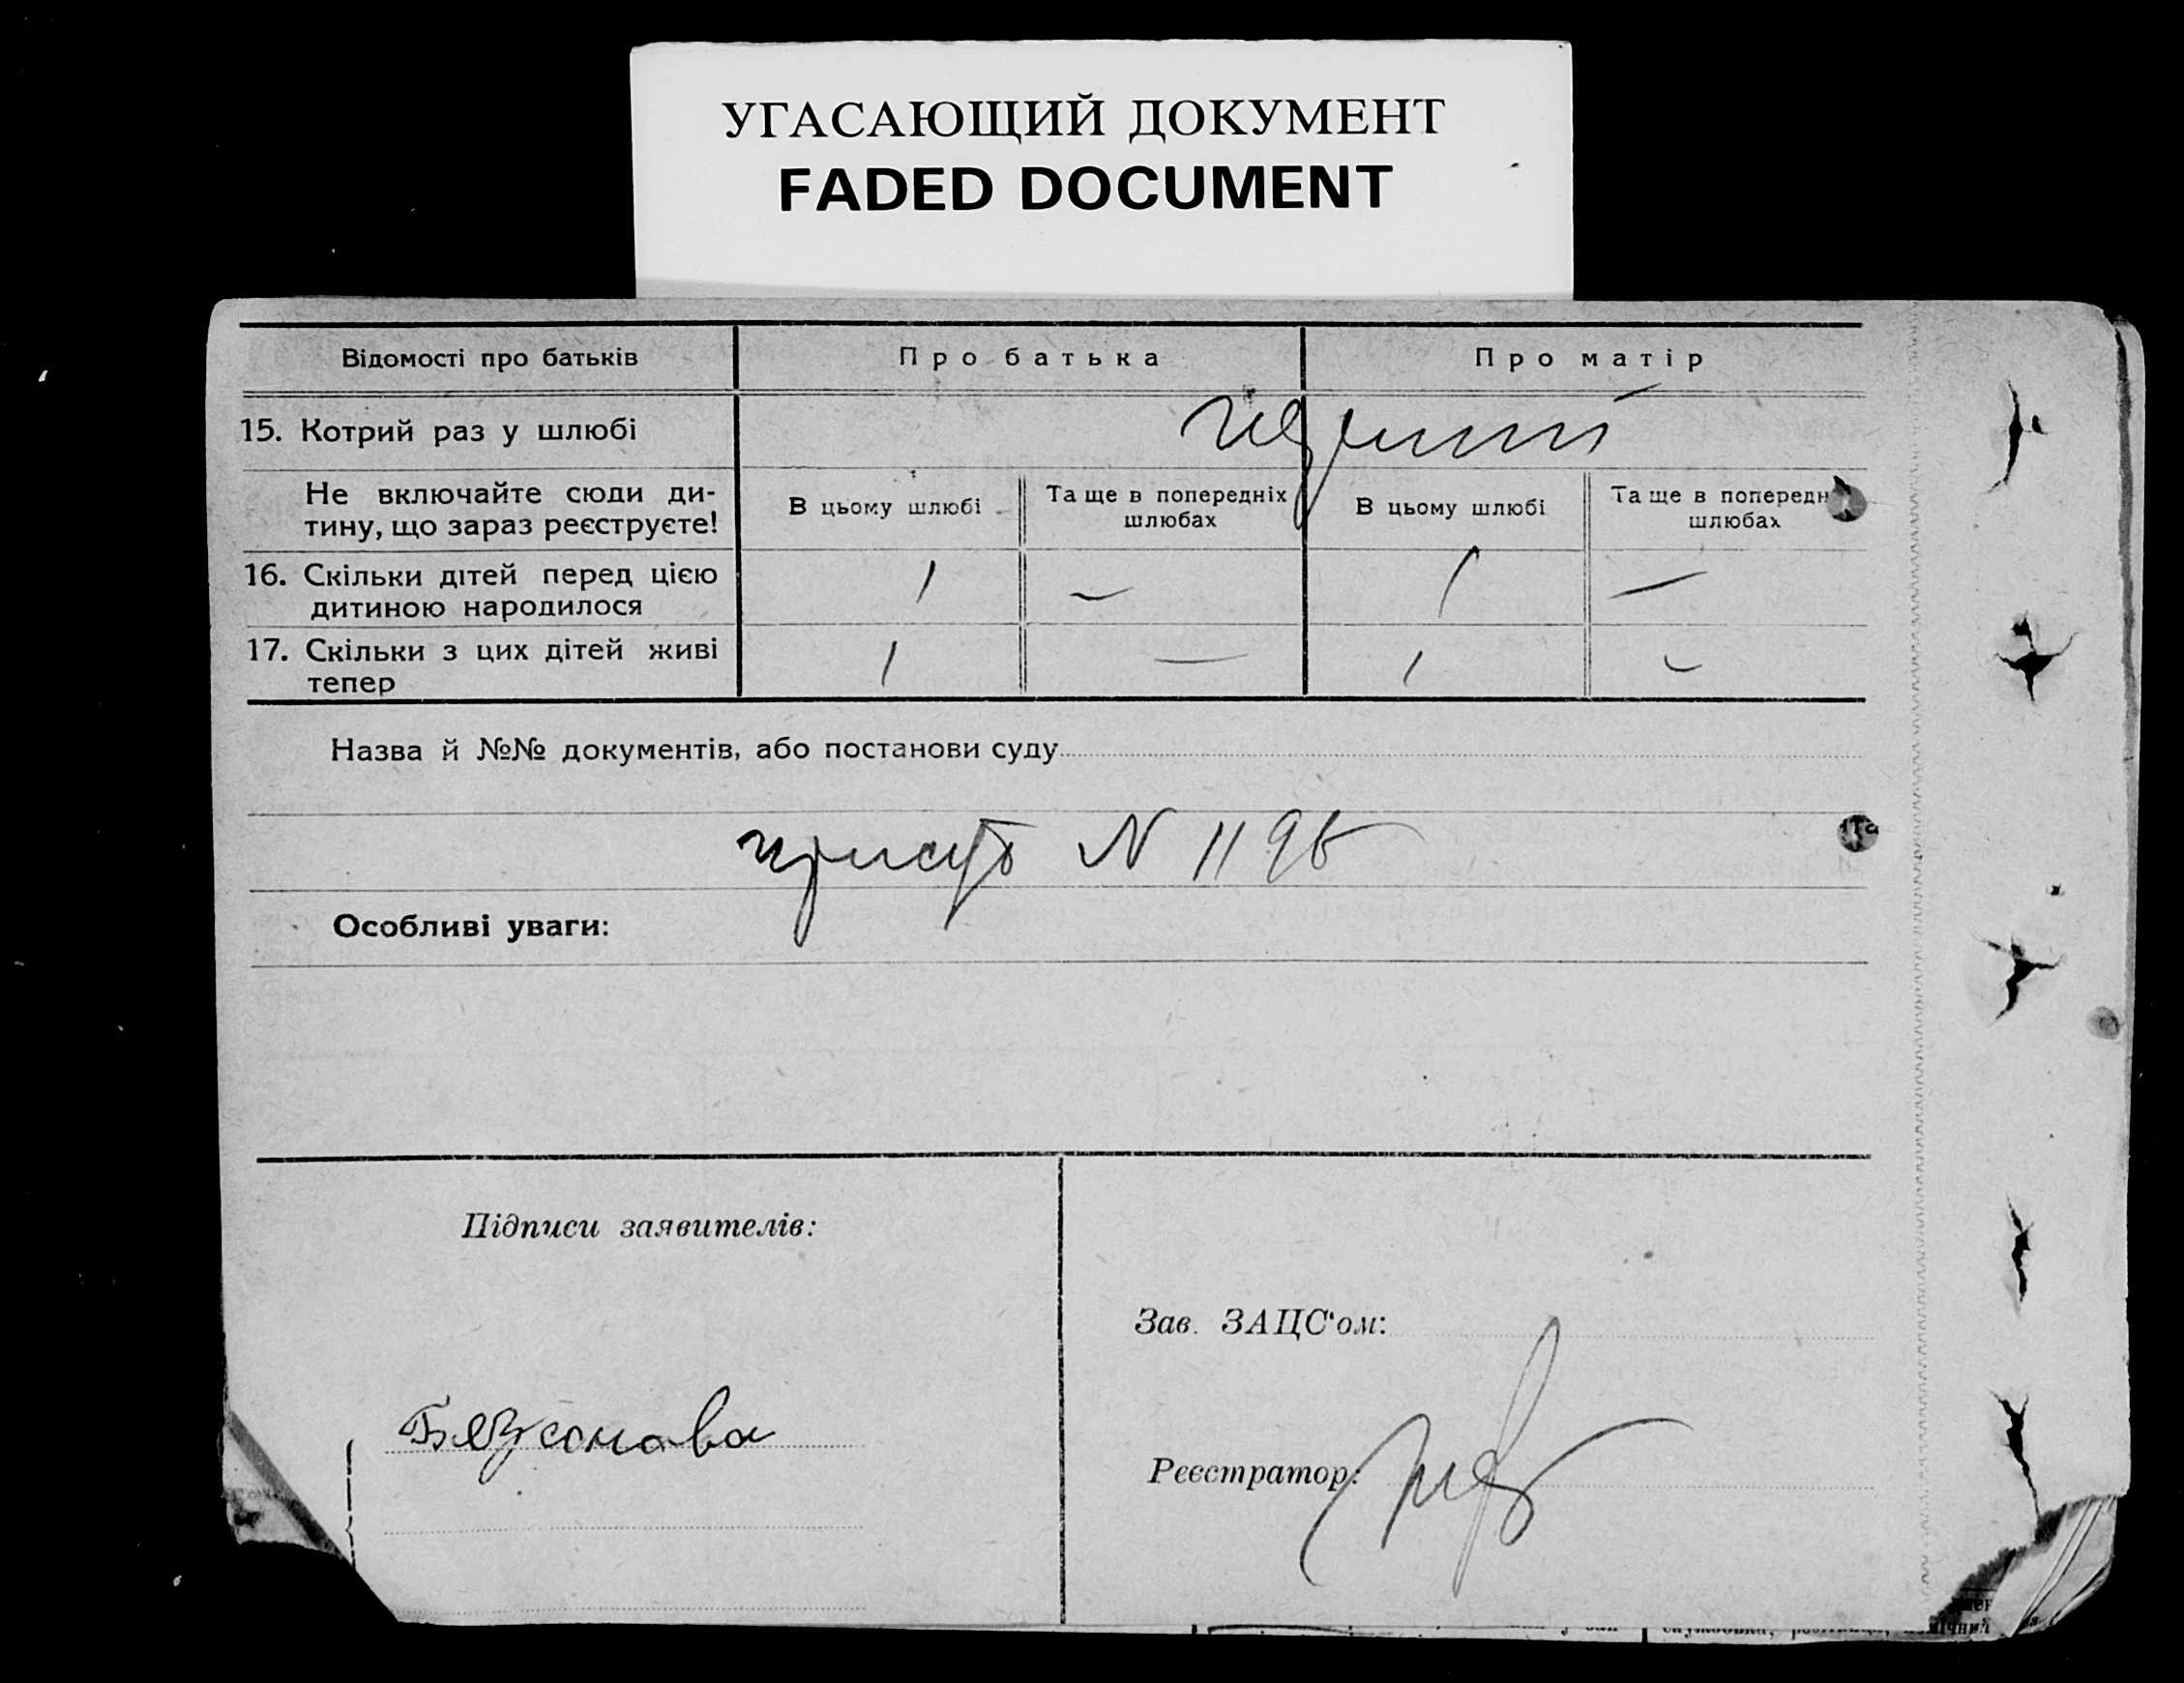 УГАСАЮЩИЙ ДОКУМЕНТ
FADED DOCUMENT
Відомості про батьків
Про батька
Про матір
15. Котрий раз у шлюбі
Не включайте сюди ди-
тину, що зараз реєструєте!
В цьому шлюбі
Та ще в попередніх
шлюбах
В цьому шлюбі
Та ще в попередн
шлюбах
16. Скільки дітей перед цією
дитиною народилося
1 — 1 —
17. Скільки з цих дітей живі
тепер
1 — 1 —
Назва й №№ документів, або постанови суду
N 1196
Особливі уваги:
Підписи заявителів:
Зав. ЗАЦС'ом:
Безсонова
Реєстратор: